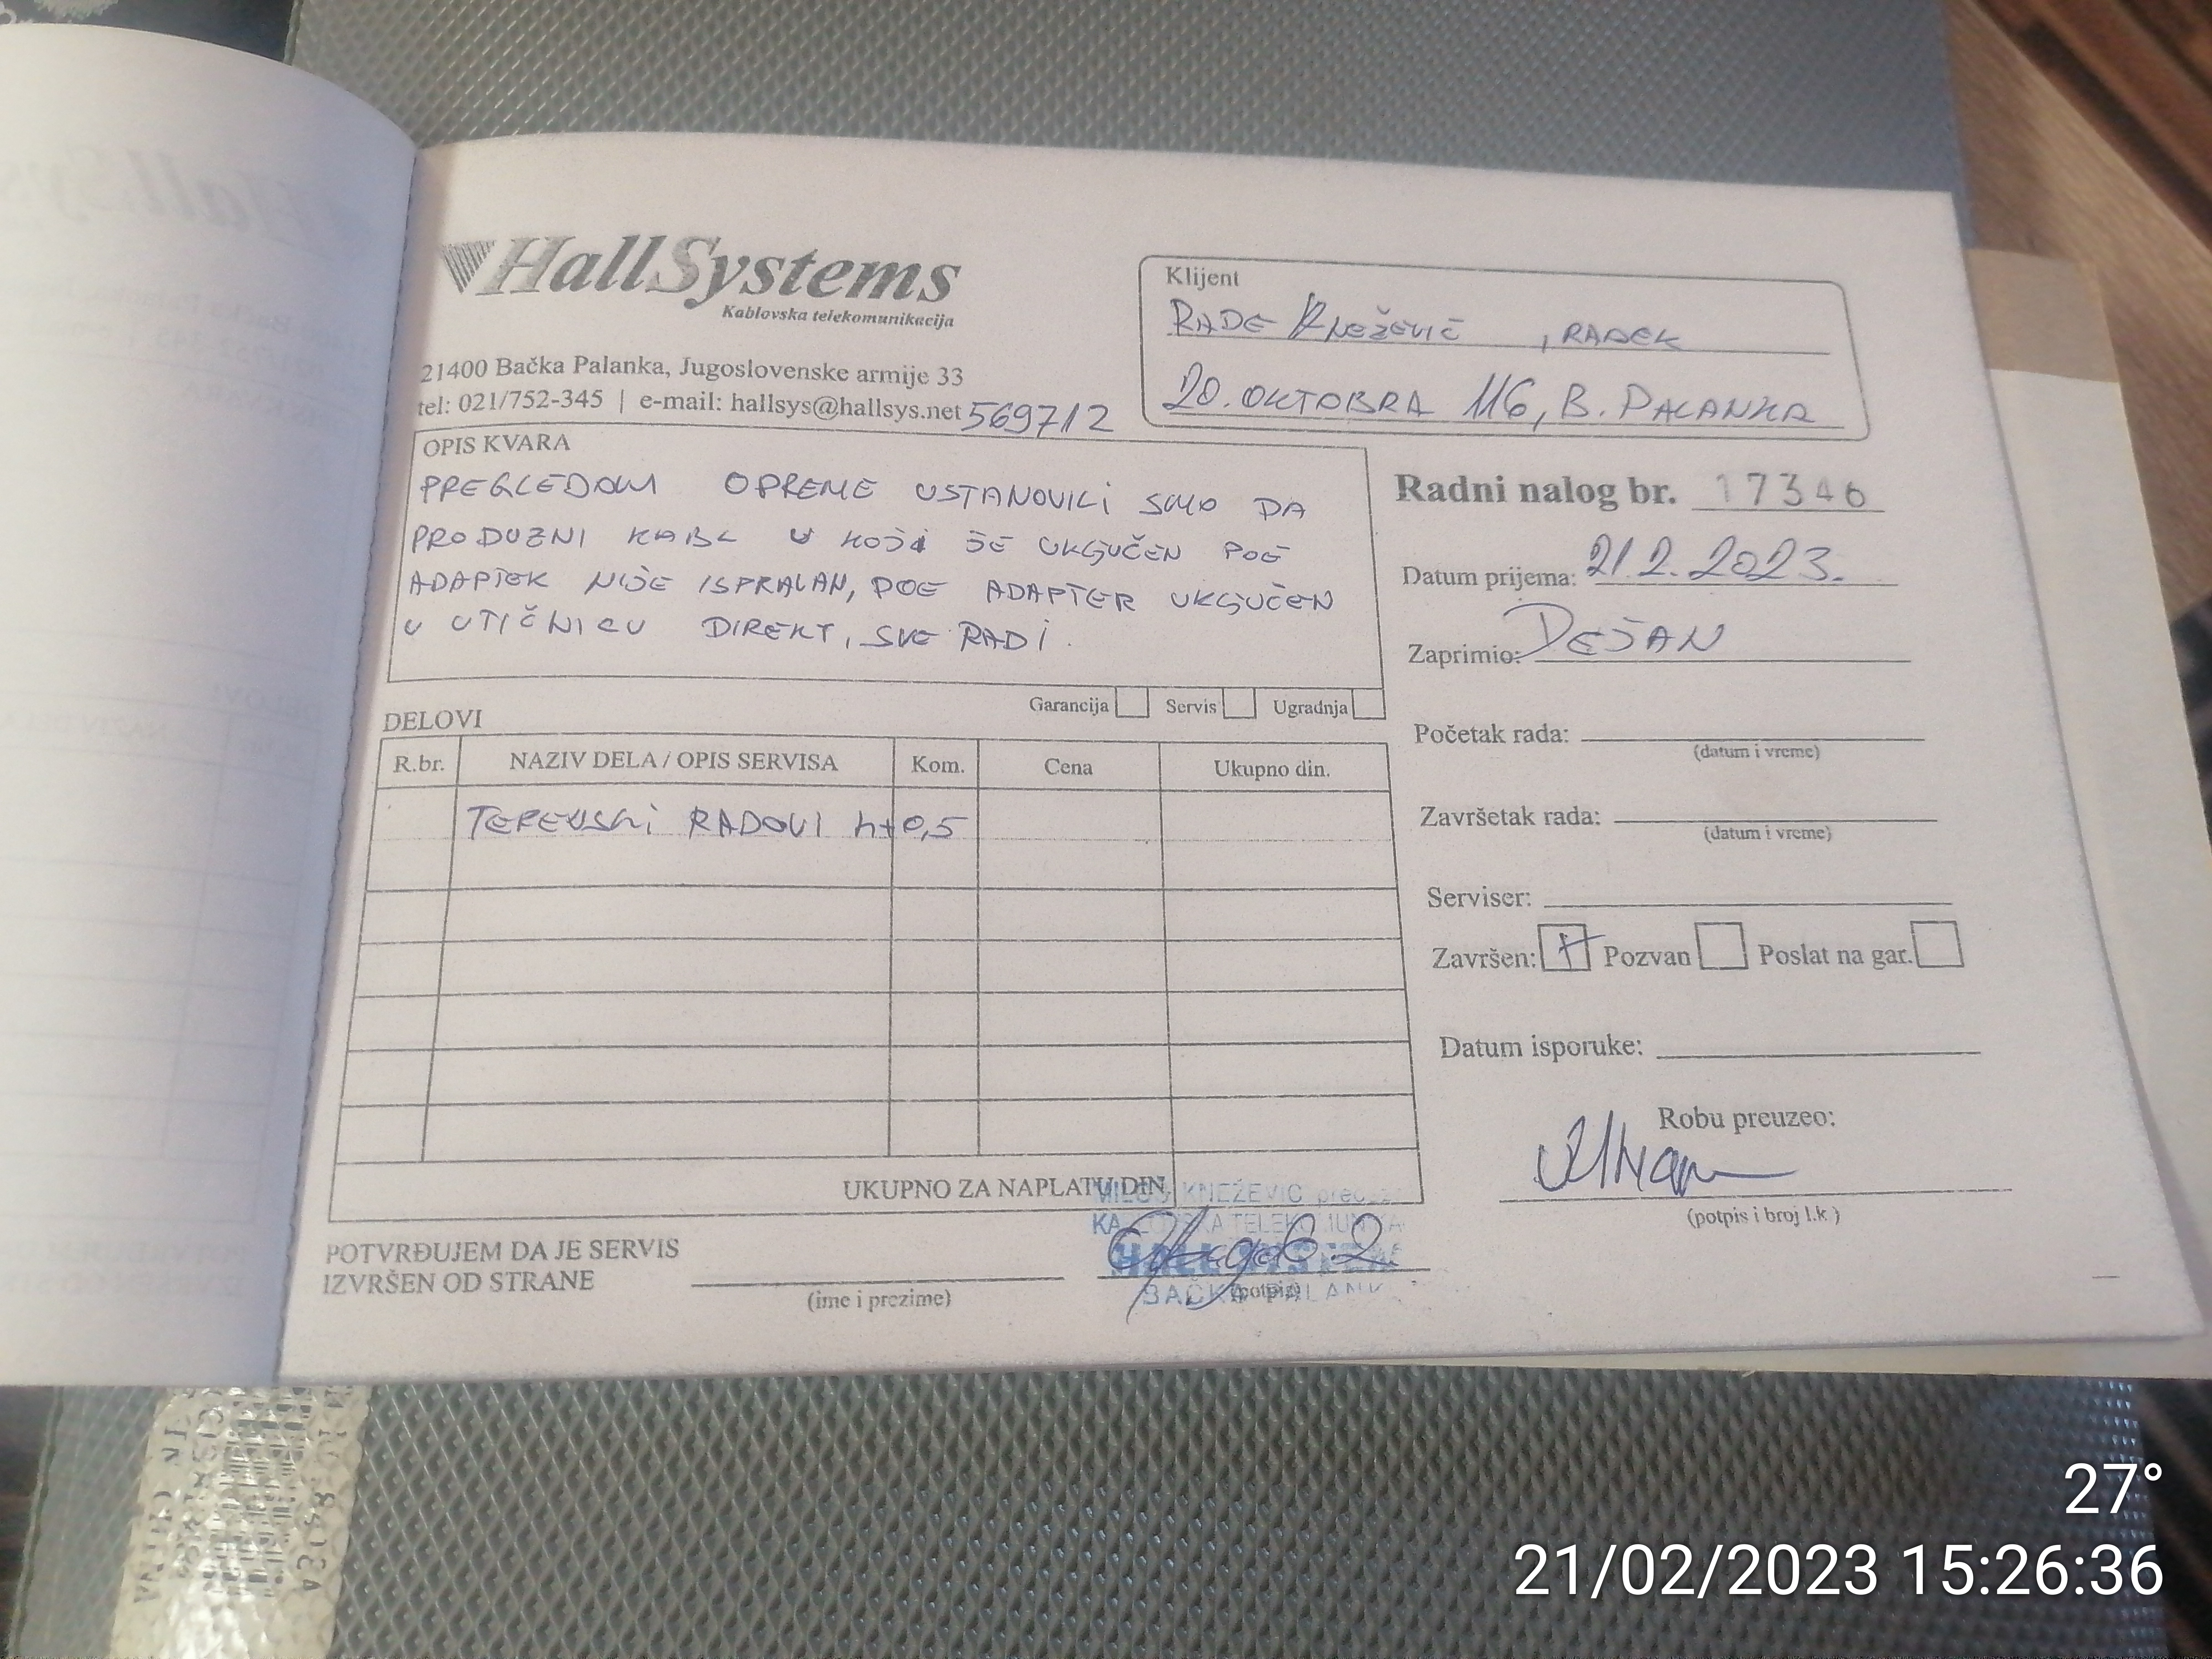 HallSystems
Kablovska telekomunikacija
21400 Bačka Palanka, Jugoslovenske armije 33
tel: 021/752-345 | e-mail: hallsys@hallsys.net 569712
Klijent
RADE KNEŽEVIĆ , RADEK
20. OKTOBRA 116, B. PALANKA
OPIS KVARA
PREGLEDOM OPREME USTANOVILI SMO DA
PRODUZNI KABL U KOJI JE UKLJUČEN POE
ADAPTER NIJE ISPRAVAN, POE ADAPTER UKLJUČEN
U UTIČNICU DIREKT, SVE RADI.
Garancija Servis Ugradnja
Radni nalog br. 17346
Datum prijema: 21.2.2023.
Zaprimio: DEJAN
Početak rada:
(datum i vreme)
Završetak rada:
(datum i vreme)
Serviser:
Završen: Pozvan Poslat na gar.
Datum isporuke:
Robu preuzeo:
(potpis i broj l.k.)
DELOVI
R.br. NAZIV DELA / OPIS SERVISA Kom. Cena Ukupno din.
TERENSKI RADOVI h+0,5
UKUPNO ZA NAPLATU DIN
POTVRĐUJEM DA JE SERVIS
IZVRŠEN OD STRANE
(ime i prezime)
(potpis)
MILOŠ KNEŽEVIĆ
HALL SYSTEMS
BAČKA PALANKA
27°
21/02/2023 15:26:36